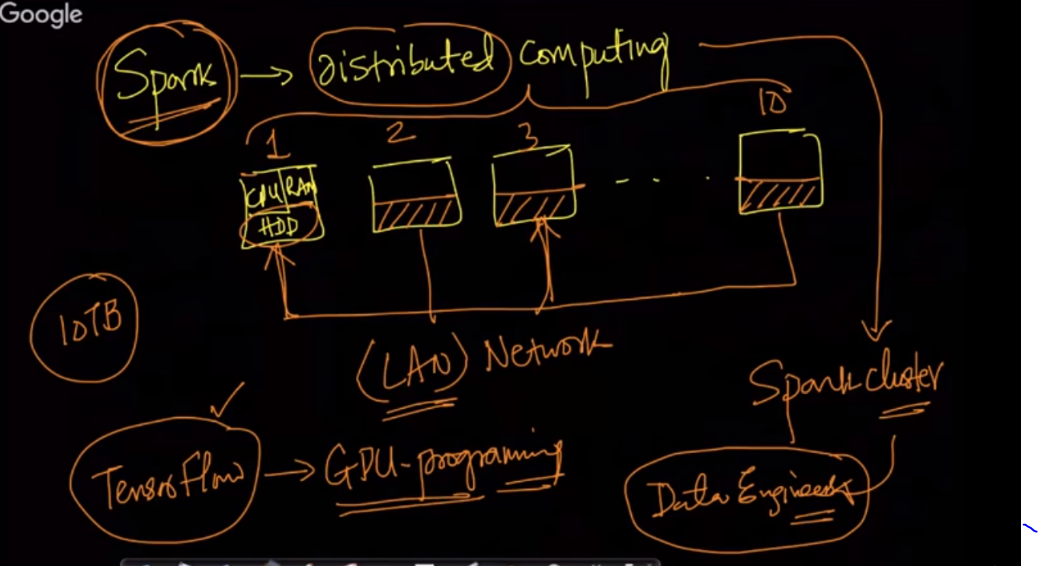 Google
Spark → Distributed computing
1 2 3 10
CPU RAM
HDD
10TB
(LAN) Network
Spark cluster
TensorFlow → GPU-programing
Data Engineers